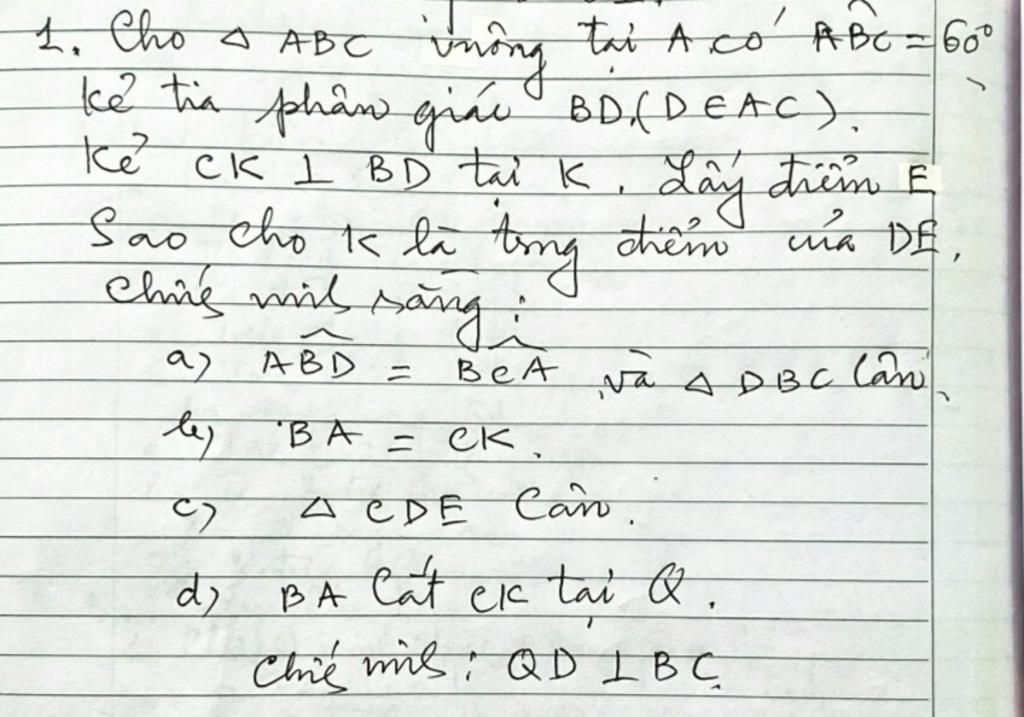 1. Cho △ ABC vuông tại A có ABC = 60°
Kẻ tia phân giác BD (D ∈ AC).
Kẻ CK ⊥ BD tại K. Lấy điểm E
Sao cho K là trung điểm của DE.
Chứng minh rằng:
a) ABD = BCA và △ DBC Cân
b) BA = CK.
c) △ CDE Cân.
d) BA Cắt CK tại Q.
Chứng minh: QD ⊥ BC